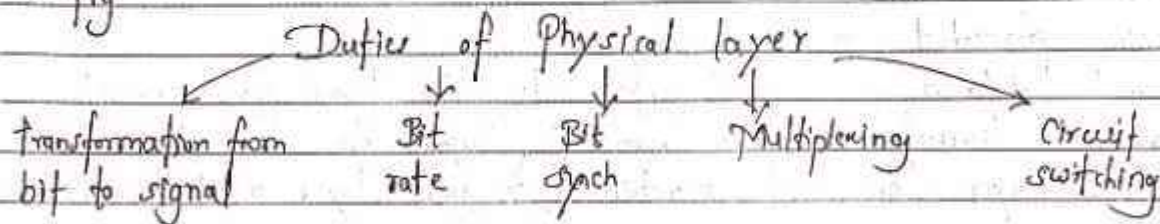 fig
Duties of Physical layer
transformation from bit to signal
Bit rate
Bit synch
Multiplexing
Circuit switching